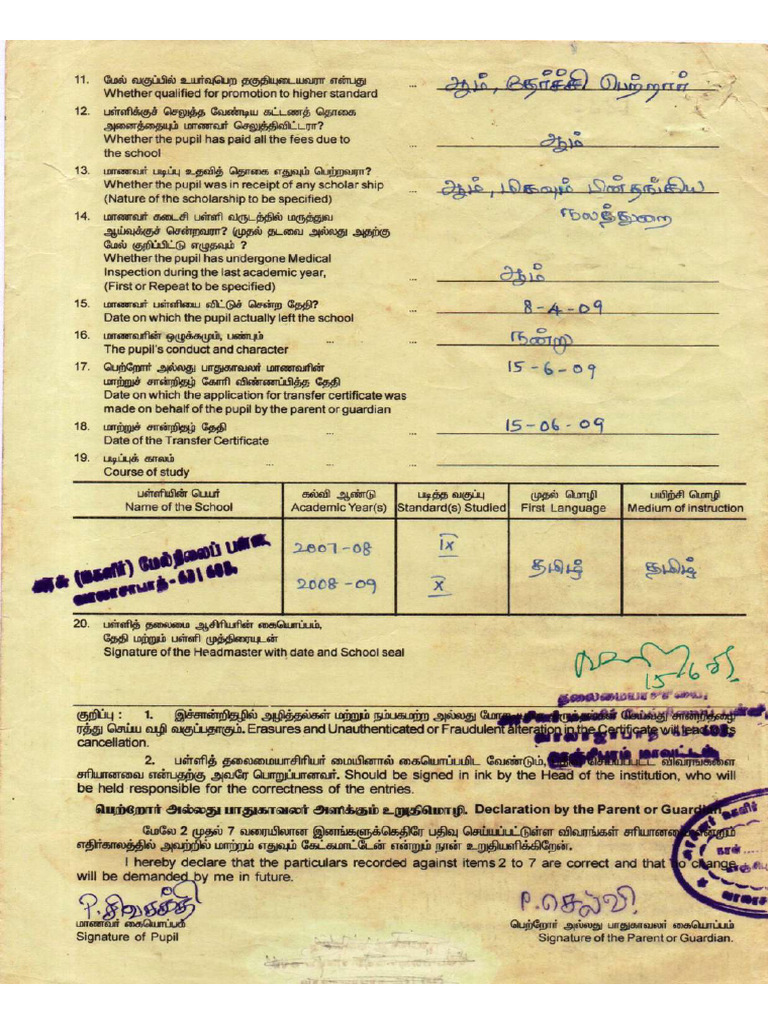 11. மேல் வகுப்பில் உயர்வுபெற தகுதியுடையவரா என்பது
Whether qualified for promotion to higher standard ... ஆம், தேர்ச்சி பெற்றார்
12. பள்ளிக்குச் செலுத்த வேண்டிய கட்டணத் தொகை
அனைத்தையும் மாணவர் செலுத்திவிட்டரா?
Whether the pupil has paid all the fees due to ... ஆம்
the school
13. மாணவர் படிப்பு உதவித் தொகை எதுவும் பெற்றவரா?
Whether the pupil was in receipt of any scholar ship ... ஆம், மிகவும் பின்தங்கிய
(Nature of the scholarship to be specified) நலத்துறை
14. மாணவர் கடைசி பள்ளி வருடத்தில் மருத்துவ
ஆய்வுக்குச் சென்றவரா? (முதல் தடவை அல்லது அதற்கு
மேல் குறிப்பிட்டு எழுதவும் ?
Whether the pupil has undergone Medical
Inspection during the last academic year, ... ஆம்
(First or Repeat to be specified)
15. மாணவர் பள்ளியை விட்டுச் சென்ற தேதி?
Date on which the pupil actually left the school ... 8-4-09
16. மாணவரின் ஒழுக்கமும், பண்பும்
The pupil's conduct and character ... நன்று
17. பெற்றோர் அல்லது பாதுகாவலர் மாணவரின்
மாற்றுச் சான்றிதழ் கோரி விண்ணப்பித்த தேதி ... 15-6-09
Date on which the application for transfer certificate was
made on behalf of the pupil by the parent or guardian
18. மாற்றுச் சான்றிதழ் தேதி
Date of the Transfer Certificate ... ... 15-06-09
19. படிப்புக் காலம்
Course of study ... ... ...
பள்ளியின் பெயர் கல்வி ஆண்டு படித்த வகுப்பு முதல் மொழி பயிற்சி மொழி
Name of the School Academic Year(s) Standard(s) Studied First Language Medium of instruction
அரசு (மகளிர்) மேல்நிலைப் பள்ளி,
வாலாசாபாத்-631 605.
2007-08 IX தமிழ் தமிழ்
2008-09 X
20. பள்ளித் தலைமை ஆசிரியரின் கையொப்பம்,
தேதி மற்றும் பள்ளி முத்திரையுடன்
Signature of the Headmaster with date and School seal
தலைமையாசிரியை,
காஞ்சிபுரம் மாவட்டம்
குறிப்பு : 1. இச்சான்றிதழில் அழித்தல்கள் மற்றும் நம்பகமற்ற அல்லது சான்றிதழை
ரத்து செய்ய வழி வகுப்பதாகும். Erasures and Unauthenticated or Fraudulent alteration in the Certificate will lead to its
cancellation.
2. பள்ளித் தலைமையாசிரியர் மையினால் கையொப்பமிட வேண்டும், செய்யப்பட்ட விவரங்களை
சரியானவை என்பதற்கு அவரே பொறுப்பானவர். Should be signed in ink by the Head of the institution, who will
be held responsible for the correctness of the entries.
பெற்றோர் அல்லது பாதுகாவலர் அளிக்கும் உறுதிமொழி. Declaration by the Parent or Guardian
மேலே 2 முதல் 7 வரையிலான இனங்களுக்கெதிரே பதிவு செய்யப்பட்டுள்ள விவரங்கள் சரியானவை என்றும்
எதிர்காலத்தில் அவற்றில் மாற்றம் எதுவும் கேட்கமாட்டேன் என்றும் நான் உறுதியளிக்கிறேன்.
I hereby declare that the particulars recorded against items 2 to 7 are correct and that no change
will be demanded by me in future.
P. சிவசக்தி P. செல்வி
மாணவர் கையொப்பம் பெற்றோர் அல்லது பாதுகாவலர் கையொப்பம்
Signature of Pupil Signature of the Parent or Guardian.